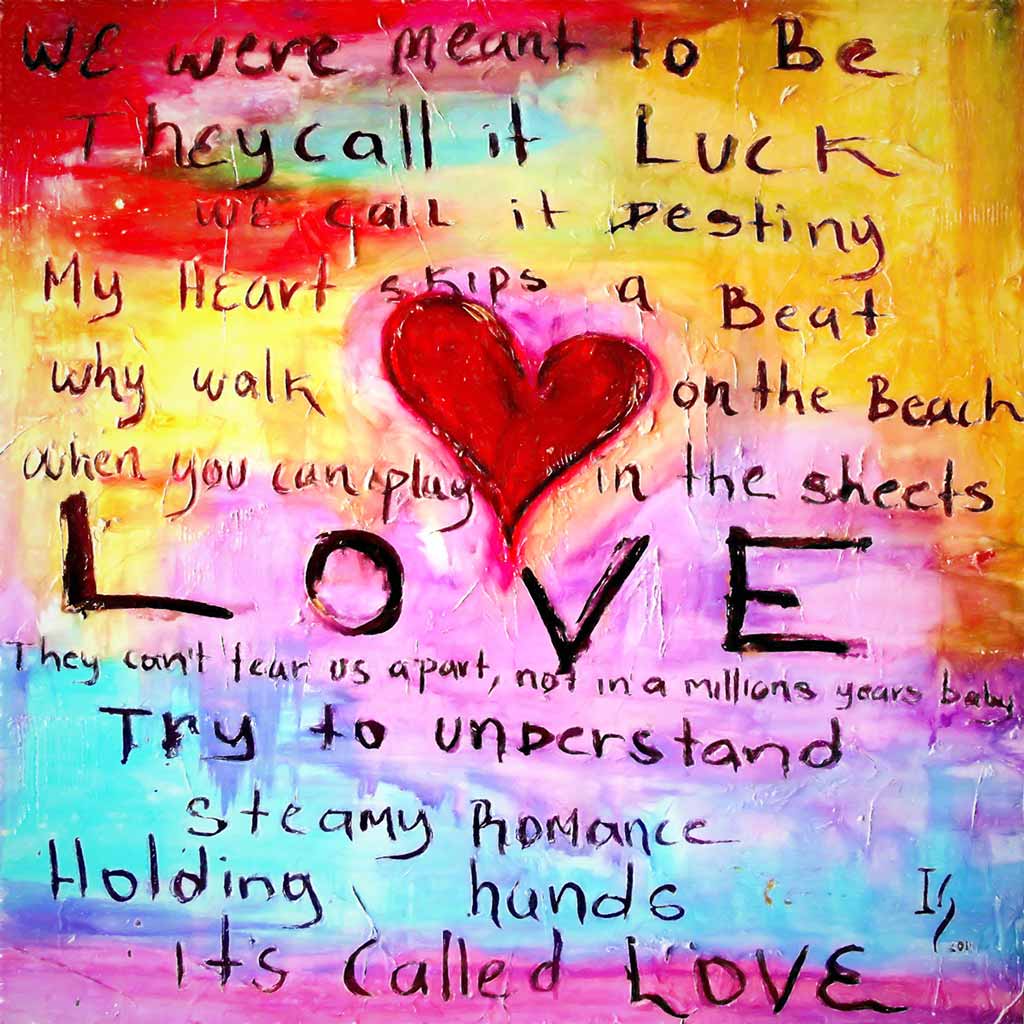 WE were meant to Be
They call it Luck
WE call it Destiny
My HEart skips a Beat
why walk on the Beach
when you can play in the sheets
LOVE
They can't tear us apart, not in a millions years baby
Try to understand
steamy Romance
Holding hands
it's called LOVE